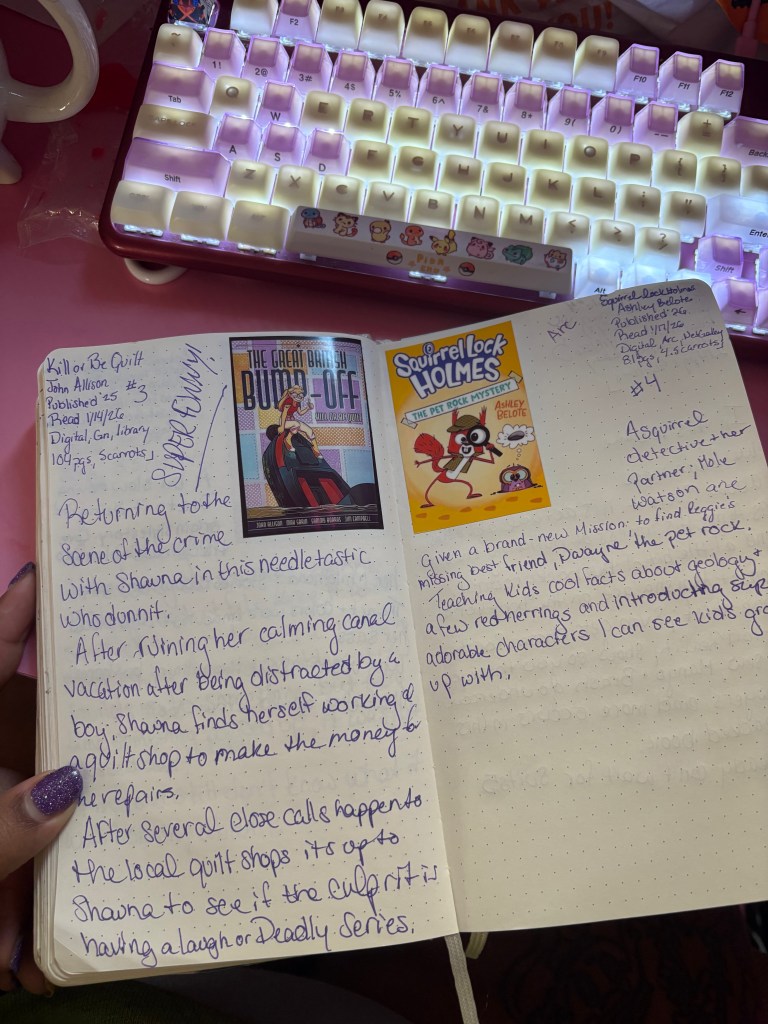 F2
F10
F11
F12
1!
2@
3#
4$
5%
6^
7&
8*
9(
0)
Tab
Q
W
E
R
T
Y
U
I
O
P
Back
A
S
D
F
G
H
J
K
L
Enter
Shift
Z
X
C
V
B
N
M
Shift
Alt
Kill or Be Quilt
John Allison #3
Published '25
Read 1/14/26
Digital, Gn, library
104 pgs, 5 carrots
SUPER FUNNY!
THE GREAT BRITISH
BUMP-OFF
KILL OR BE QUILT
JOHN ALLISON
Returning to the
scene of the crime
with Shauna in this needletastic
whodunnit.
After ruining her calming canal
vacation after being distracted by a
boy, Shauna finds herself working @
a quilt shop to make the money for
the repairs.
After several close calls happen to
the local quilt shops its up to
Shauna to see if the culprit is
having a laugh or Deadly Series.
SquirrelLock
HOLMES
THE PET ROCK MYSTERY
ASHLEY
BELOTE
Arc
Squirrel Lock Holmes
Ashley Belote
Published '26
Read 1/17/26
Digital Arc, NetGalley
81 pgs, 4.5 carrots
#4
A squirrel
detective + her
Partner, Mole
Watson are
Given a brand-new Mission: to find Reggie's
missing best friend, Dwayne 'the pet rock.
Teaching kids cool facts about geology +
a few red herrings and introducing
adorable characters I can see kids
up with.